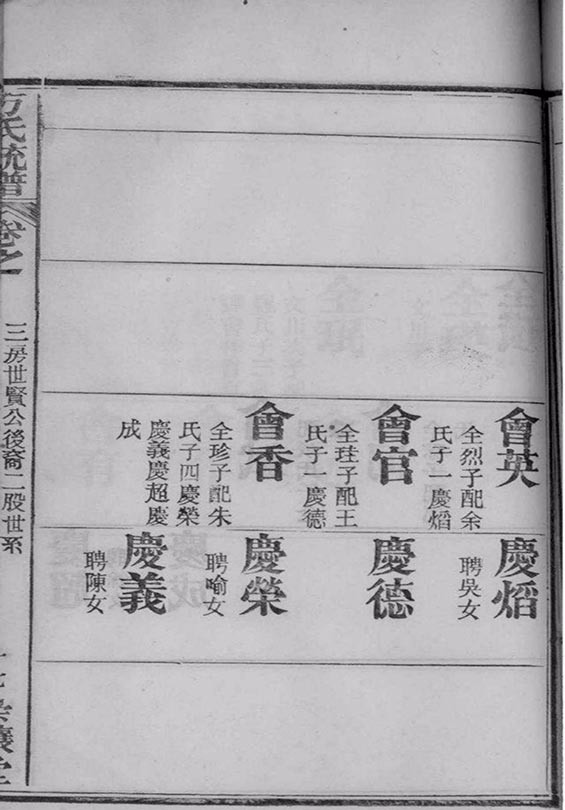 會英
全烈子配余
氏子一慶熖
會官
全珪子配王
氏子一慶德
會香
全珍子配朱
氏子四慶榮
慶義慶超慶
成
慶熖
聘吳女
慶德
慶榮
聘喻女
慶義
聘陳女
方氏統譜
卷之
三房世賢公後裔二股世系